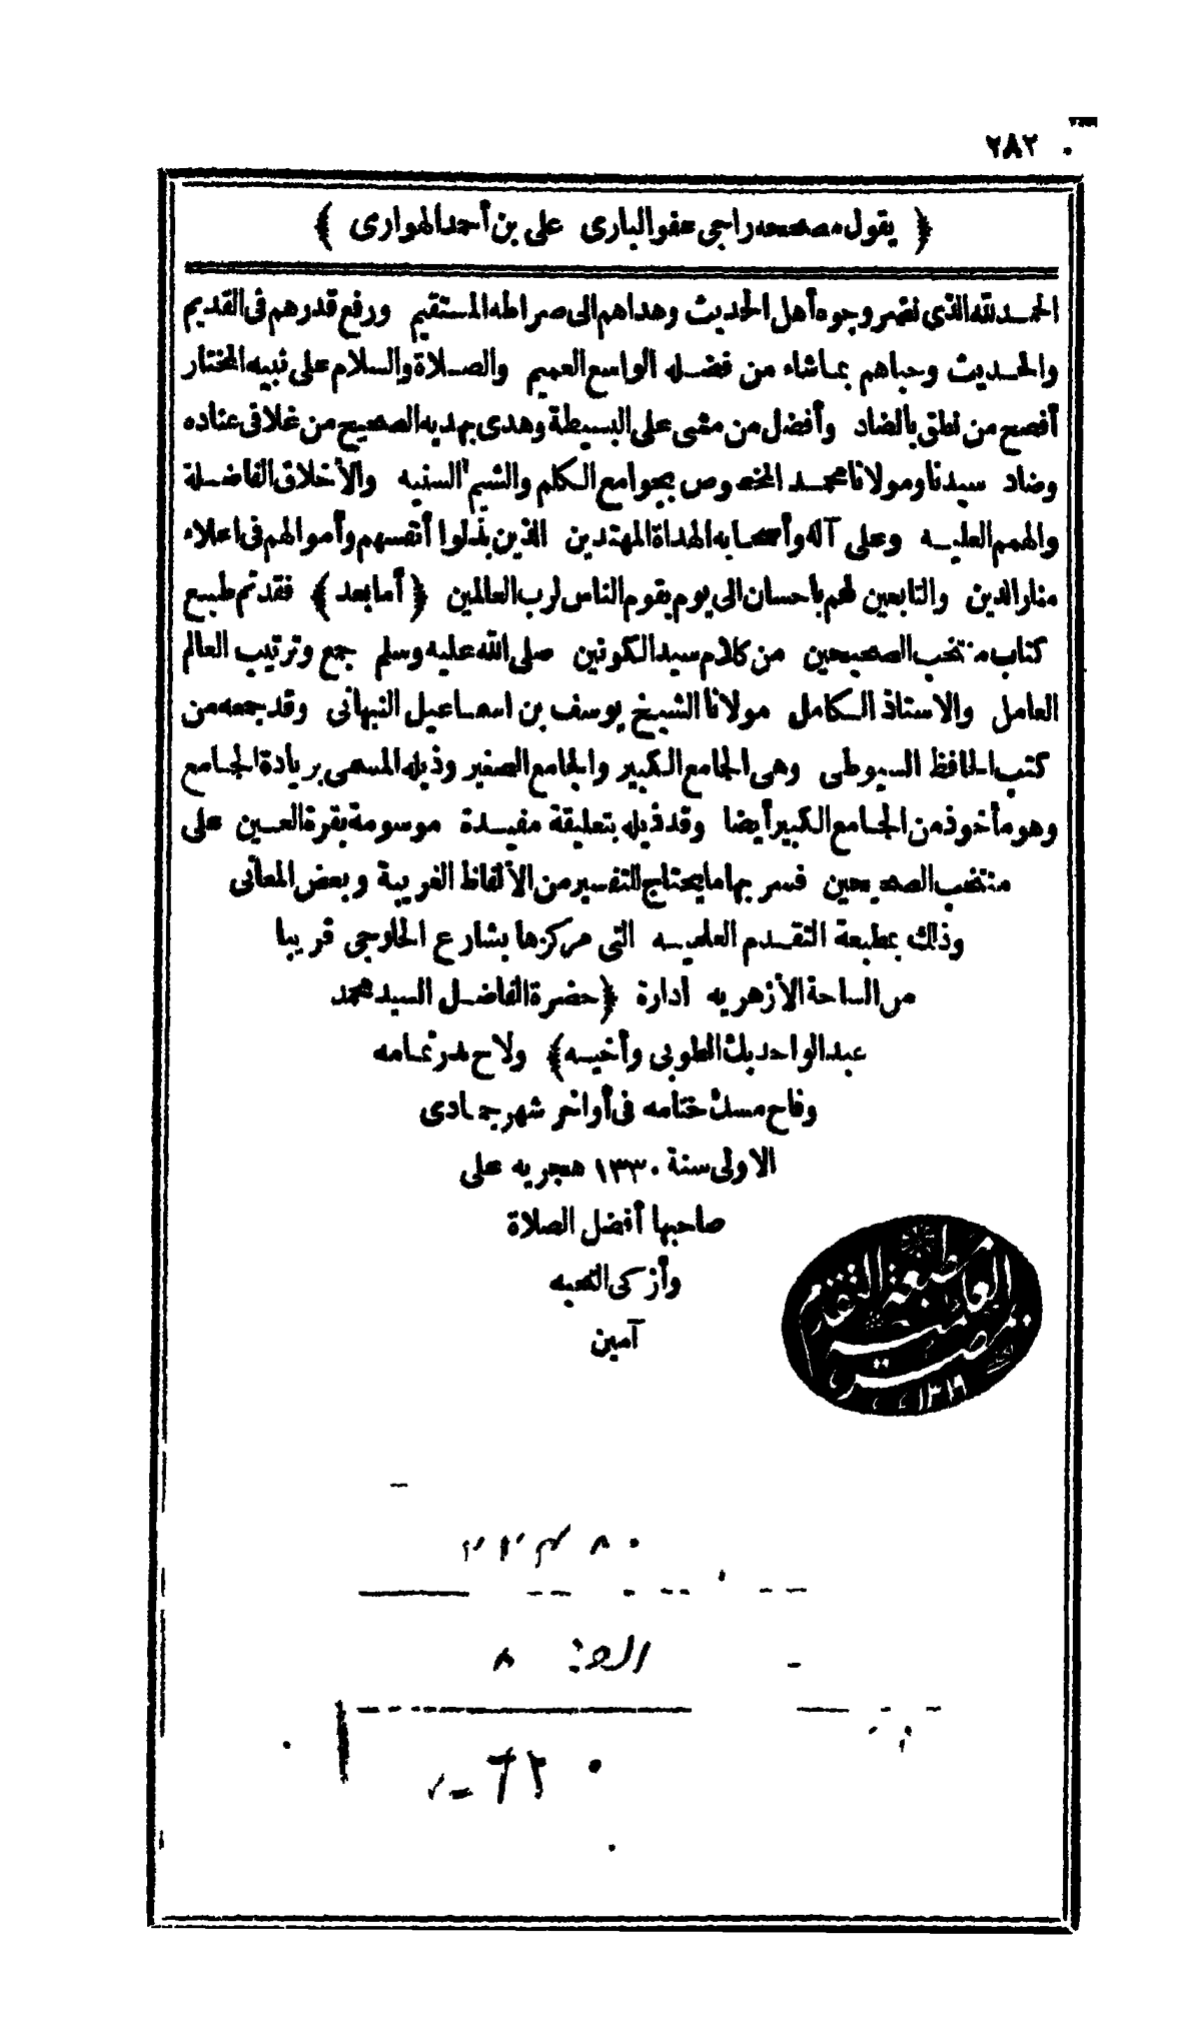 ٢٨٢
﴿ يقول مصححه راجى عفو البارى على بن أحمد الهوارى ﴾
الحمد لله الذي نضر وجوه أهل الحديث وهداهم الى صراطه المستقيم ورفع قدرهم فى القديم
والحديث وحباهم بما شاء من فضله الواسع العميم والصلاة والسلام على نبيه المختار
أفصح من نطق بالضاد وأفضل من مشى على البسيطة وهدى بهديه الصحيح من غلا فى عناده
وضاد سيدنا ومولانا محمد المخصوص بجوامع الكلم والشيم السنيه والأخلاق الفاضلة
والهمم العليه وعلى آله وأصحابه الهداة المهتدين الذين بذلوا أنفسهم وأموالهم فى اعلاء
منار الدين والتابعين لهم باحسان الى يوم يقوم الناس لرب العالمين ﴿ أما بعد ﴾ فقد تم طبع
كتاب منتخب الصحيحين من كلام سيد الكونين صلى الله عليه وسلم جمع وترتيب العالم
العامل والاستاذ الكامل مولانا الشيخ يوسف بن اسماعيل النبهانى وقد جمعه من
كتب الحافظ السيوطى وهى الجامع الكبير والجامع الصغير وذيله المسمى بزيادة الجامع
وهو مأخوذ من الجامع الكبير أيضا وقد ذيله بتعليقة مفيدة موسومة بقرة العين على
منتخب الصحيحين فسر بها ما يحتاج للتفسير من الألفاظ الغريبة وبعض المعانى
وذلك بمطبعة التقدم العلميه التى مركزها بشارع الحلوجى قريبا
من الساحة الأزهريه ادارة ﴿ حضرة الفاضل السيد محمد
عبد الواحد بك الطوبى وأخيه ﴾ ولاح بدر تمامه
وفاح مسك ختامه فى أواخر شهر جمادى
الاولى سنة ١٣٣٠ هجريه على
صاحبها أفضل الصلاة
وأزكى التحيه
آمين
مطبعة التقدم
العلمية
بمصر